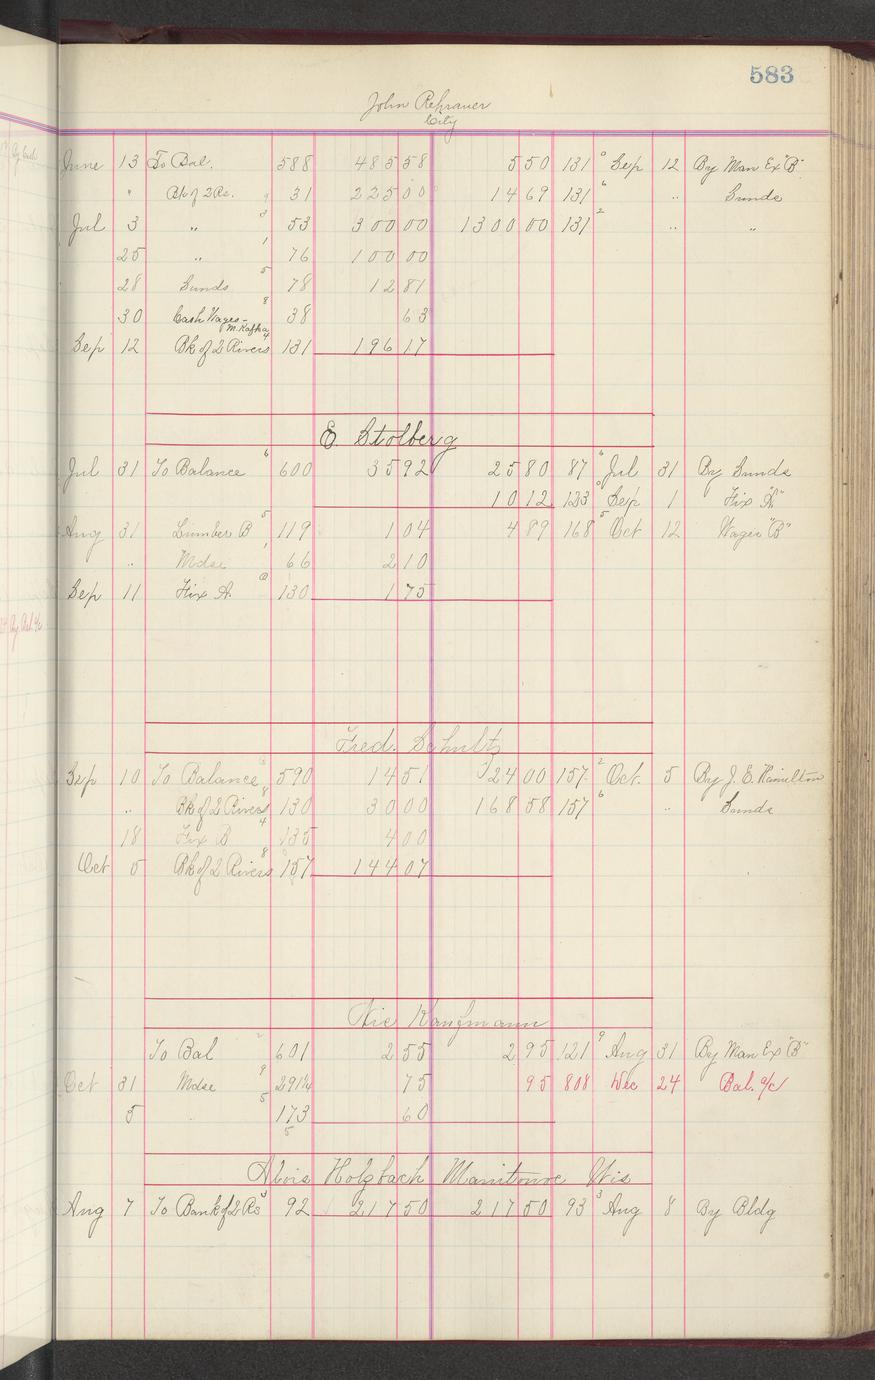 583
John Rehrauer
City
June 13 To Bal. 588 485 58 5 50 131 Sep 12 By Man Ex "B"
" Bk of 2 Rs. 31 225 00 14 69 131 6 " Sunds
Jul 3 " 3 53 300 00 1300 00 131 2 " "
25 " 1 76 100 00
28 Sunds 5 78 12 81
30 Cash Wages - M. Kafka 8 38 63
Sep 12 Bk of 2 Rivers 4 131 196 17
E. Stolberg
Jul 31 To Balance 6 600 35 92 25 80 87 6 Jul 31 By Sunds
10 12 123 Sep 1 Fix "A"
Aug 31 Lumber B 5 119 1 04 4 89 168 5 Oct 12 Wages "B"
" Mdse 1 66 2 10
Sep 11 Fix A. 130 1 75
Fred. Schultz
Sep 10 To Balance 590 14 51 24 00 157 2 Oct. 5 By J. E. Hamilton
" Bk of 2 Rivers 8 130 30 00 168 58 157 6 " Sunds
18 Fix B 4 135 4 00
Oct 5 Bk of 2 Rivers 8 157 144 07
Nic Kaufmann
To Bal 601 2 55 2 95 121 9 Aug 31 By Man Ex "B"
Oct 31 Mdse 9 291½ 75 95 808 Dec 24 Bal. a/c
5 " 5 173 60
5
Alois Holzbach Manitowoc Wis
Aug 7 To Bank of 2 Rs 3 92 217 50 217 50 93 3 Aug 8 By Bldg